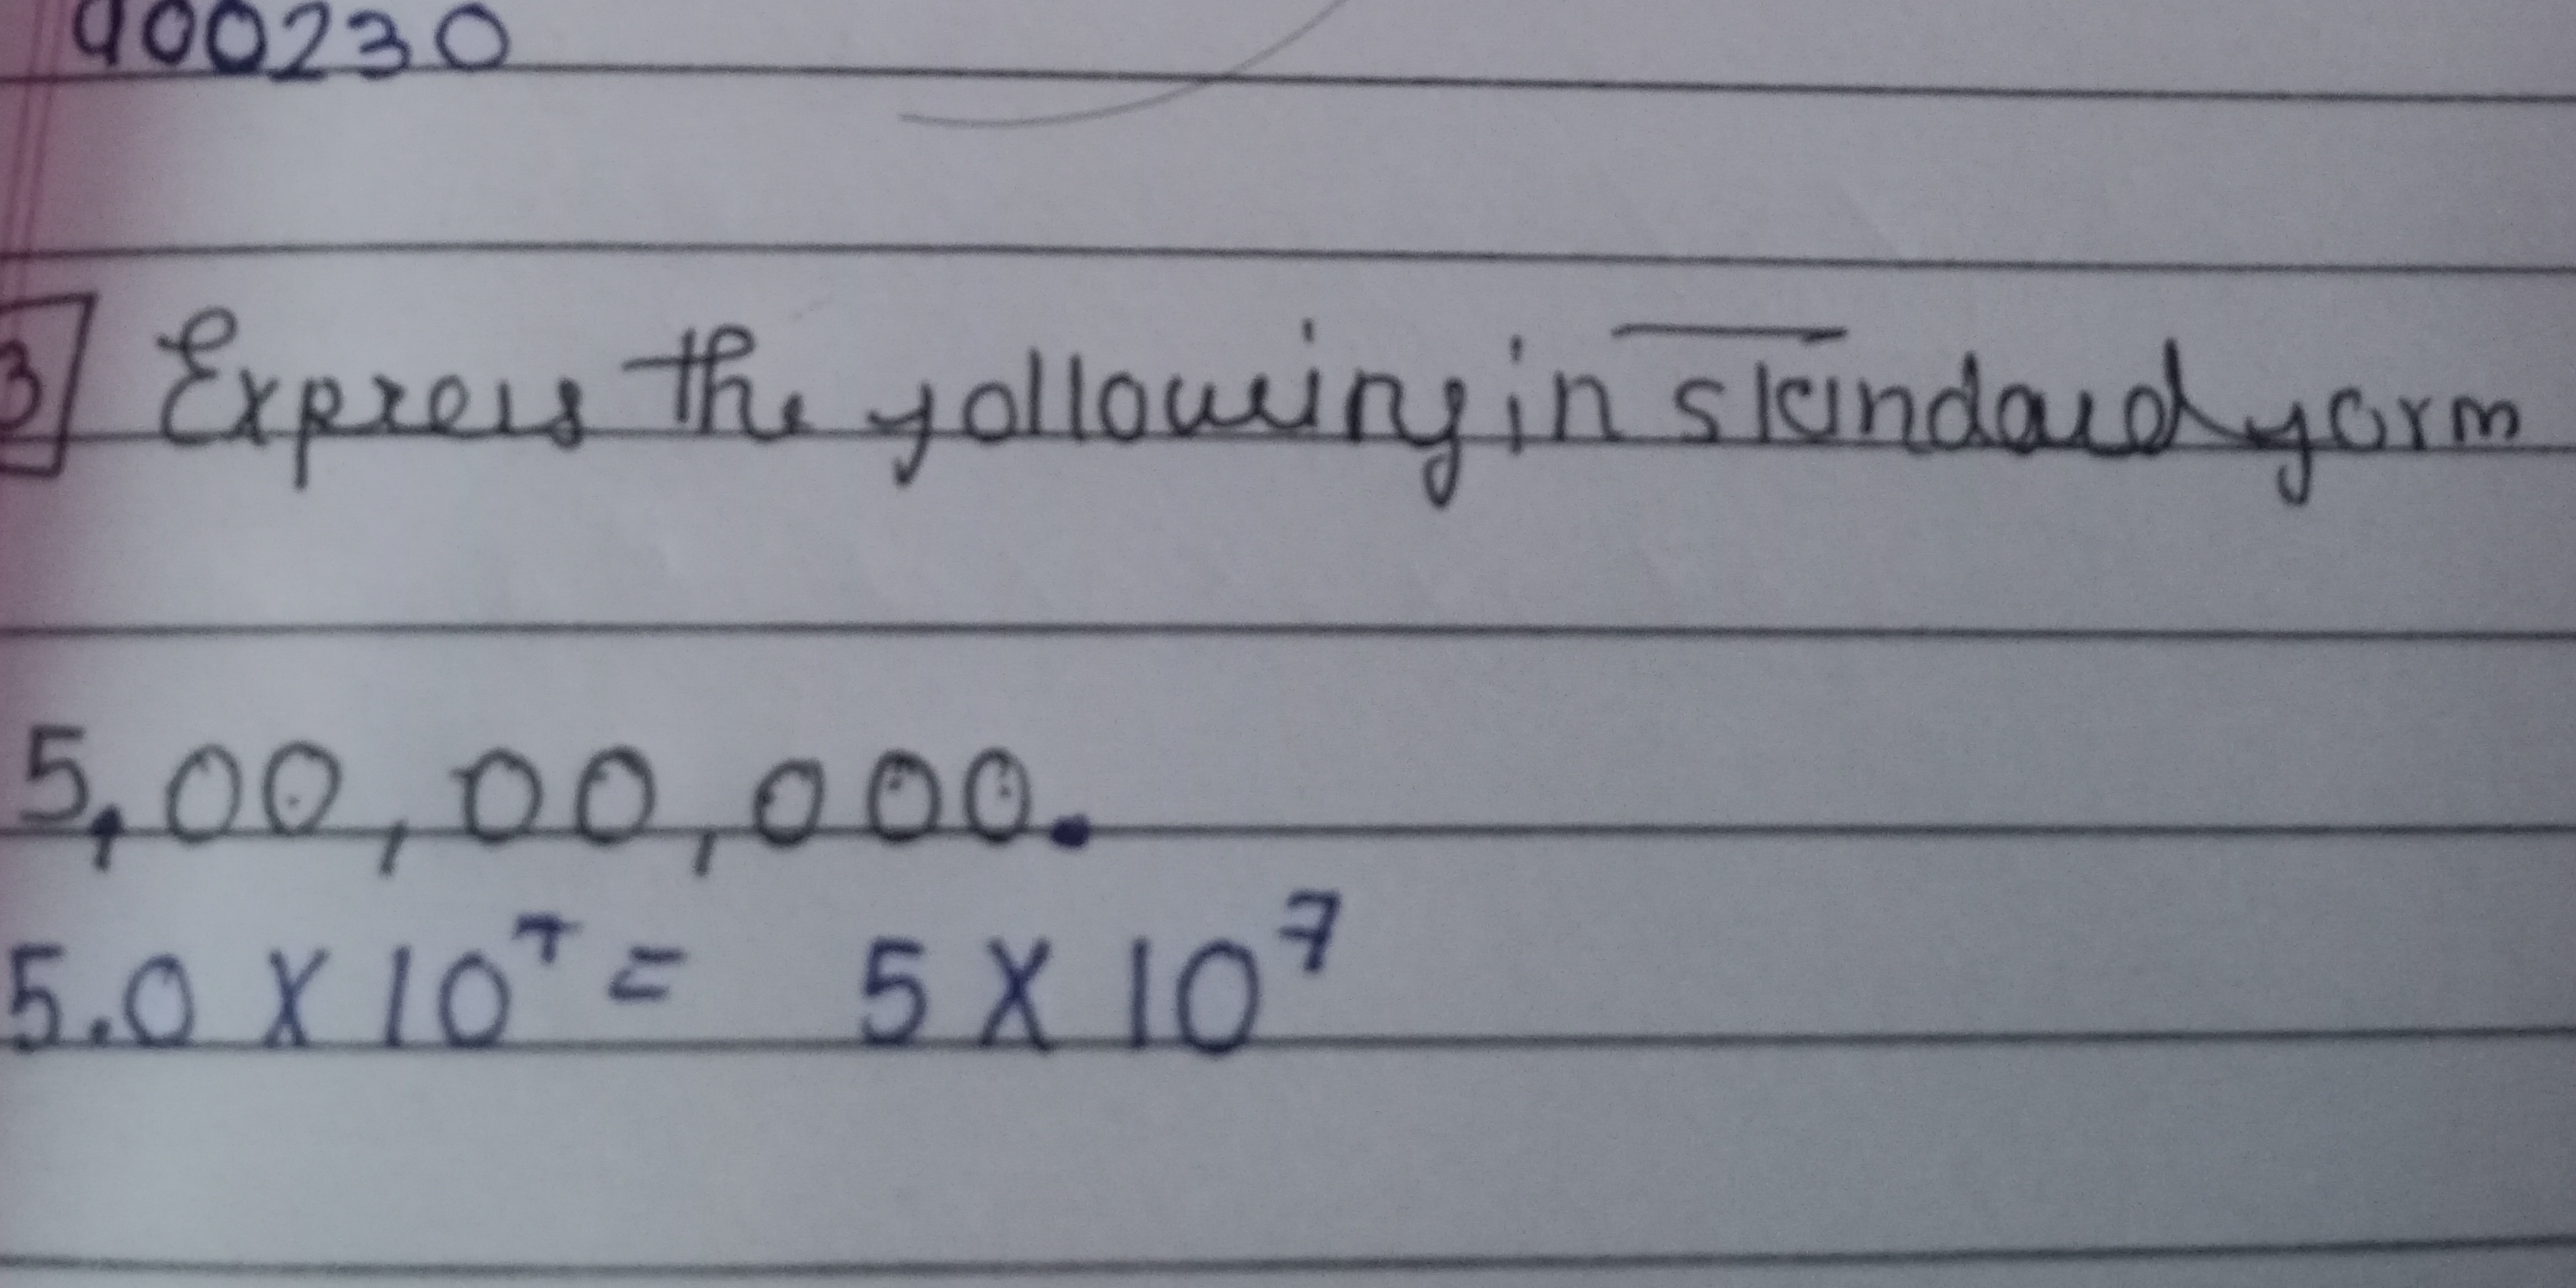 900230
3 Express the following in standard form
5,00,00,000.
5.0 X 10⁷ = 5 X 10⁷